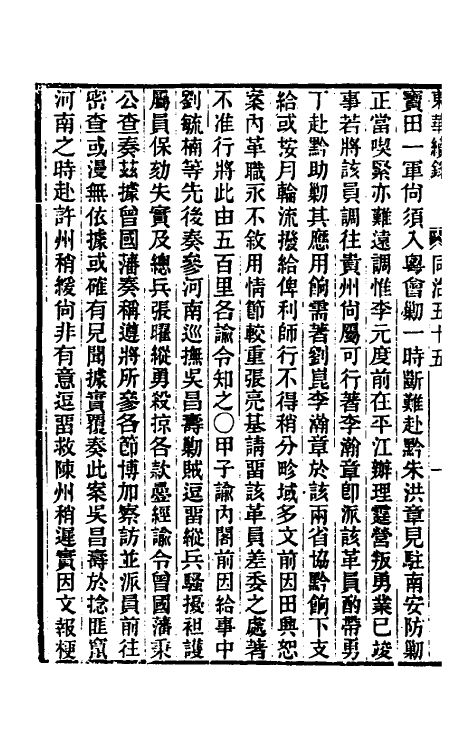 東華續錄 同治五十五 一
寶田一軍尙須入粵會勦一時斷難赴黔朱洪章見駐南安防勦
正當喫緊亦難遠調惟李元度前在平江辦理霆營叛勇業已竣
事若將該員調往貴州尙屬可行著李瀚章卽派該革員酌帶勇
丁赴黔助勦其應用餉需著劉崑李瀚章於該兩省協黔餉下支
給或按月輪流撥給俾利師行不得稍分畛域多文前因田興恕
案內革職永不敘用情節較重張亮基請留該革員差委之處著
不准行將此由五百里各諭令知之〇甲子諭內閣前因給事中
劉毓楠等先後奏參河南巡撫吳昌壽勦賊逗畱縱兵騷擾袒護
屬員保劾失實及總兵張曜縱勇殺掠各款疊經諭令曾國藩秉
公查奏茲據曾國藩奏稱遵將所參各節博加察訪並派員前往
密查或漫無依據或確有見聞據實覆奏此案吳昌壽於捻匪竄
河南之時赴許州稍緩尙非有意逗畱救陳州稍遲實因文報梗